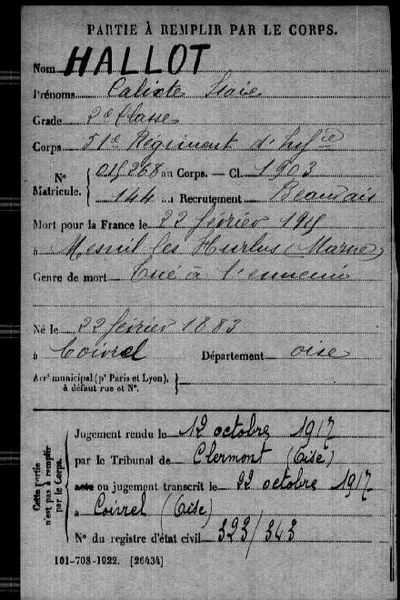 PARTIE À REMPLIR PAR LE CORPS.
Nom HALLOT
Prénoms Calixte Isaïe
Grade 2e Classe
Corps 51e Régiment d'Infrie
N° 015268 au Corps. — Cl. 1903
Matricule. 144 au Recrutement Beauvais
Mort pour la France le 22 février 1915
à Mesnil les Hurlus (Marne)
Genre de mort Tué à l'ennemi
Né le 22 février 1883
à Coivrel Département Oise
Arrt municipal (pr Paris et Lyon),
à défaut rue et N°.
Cette partie
n'est pas à remplir
par le Corps.
Jugement rendu le 12 octobre 1917
par le Tribunal de Clermont (Oise)
acte ou jugement transcrit le 22 octobre 1917
à Coivrel (Oise)
N° du registre d'état civil 323/343
101-708-1922. [26434]